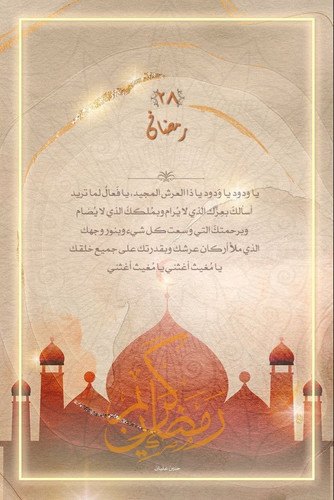 ٢٨
رمضان
يا ودود يا ودود يا ذا العرش المجيد، يا فعالُ لما تريد
أسألك بعِزِّك الذي لا يُرام وبمُلككَ الذي لا يُضام
وبرحمتكَ التي وسعت كل شيء وبنور وجهك
الذي ملأ أركان عرشك وبقدرتك على جميع خلقك
يا مُغيث أغثني يا مُغيث أغثني
رمضان كريم